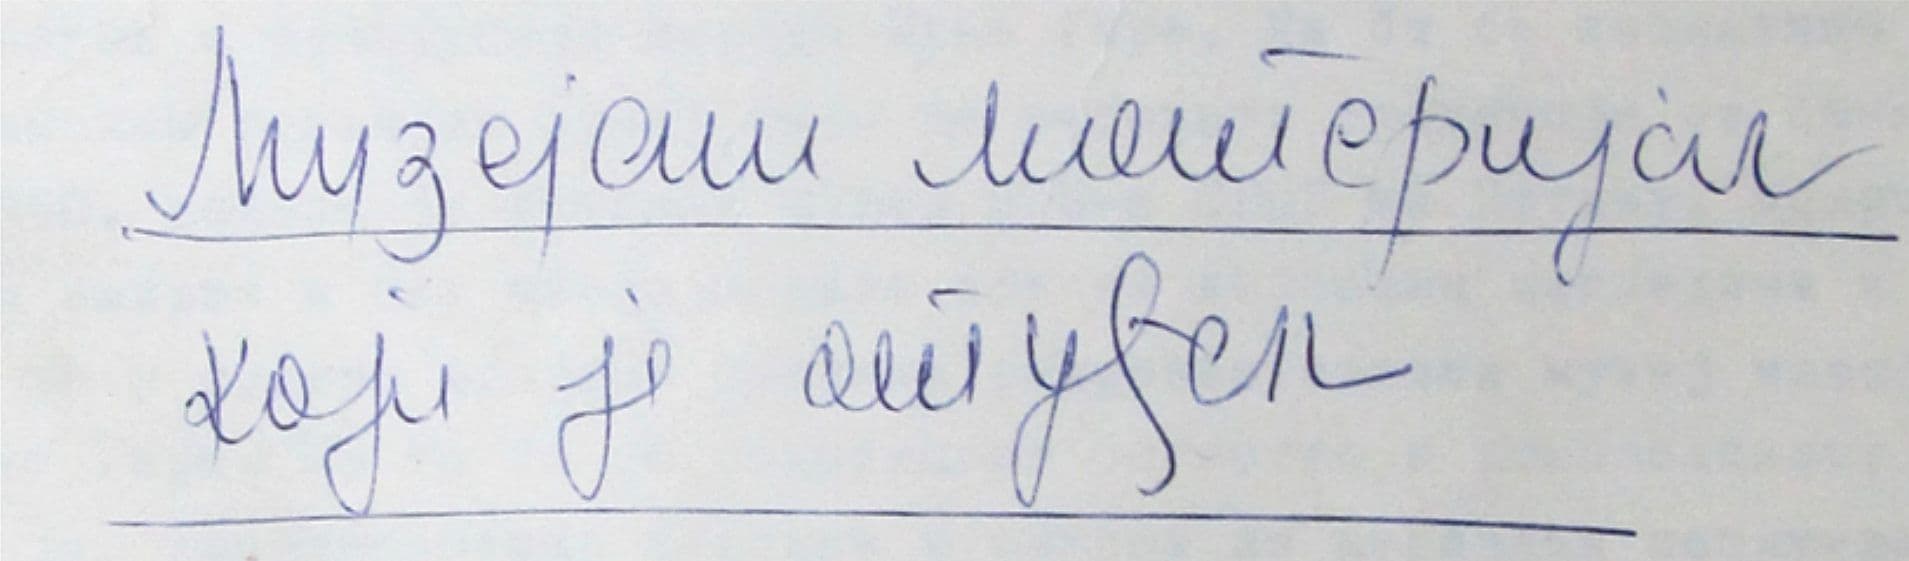 Музејски материјал
који је отуђен